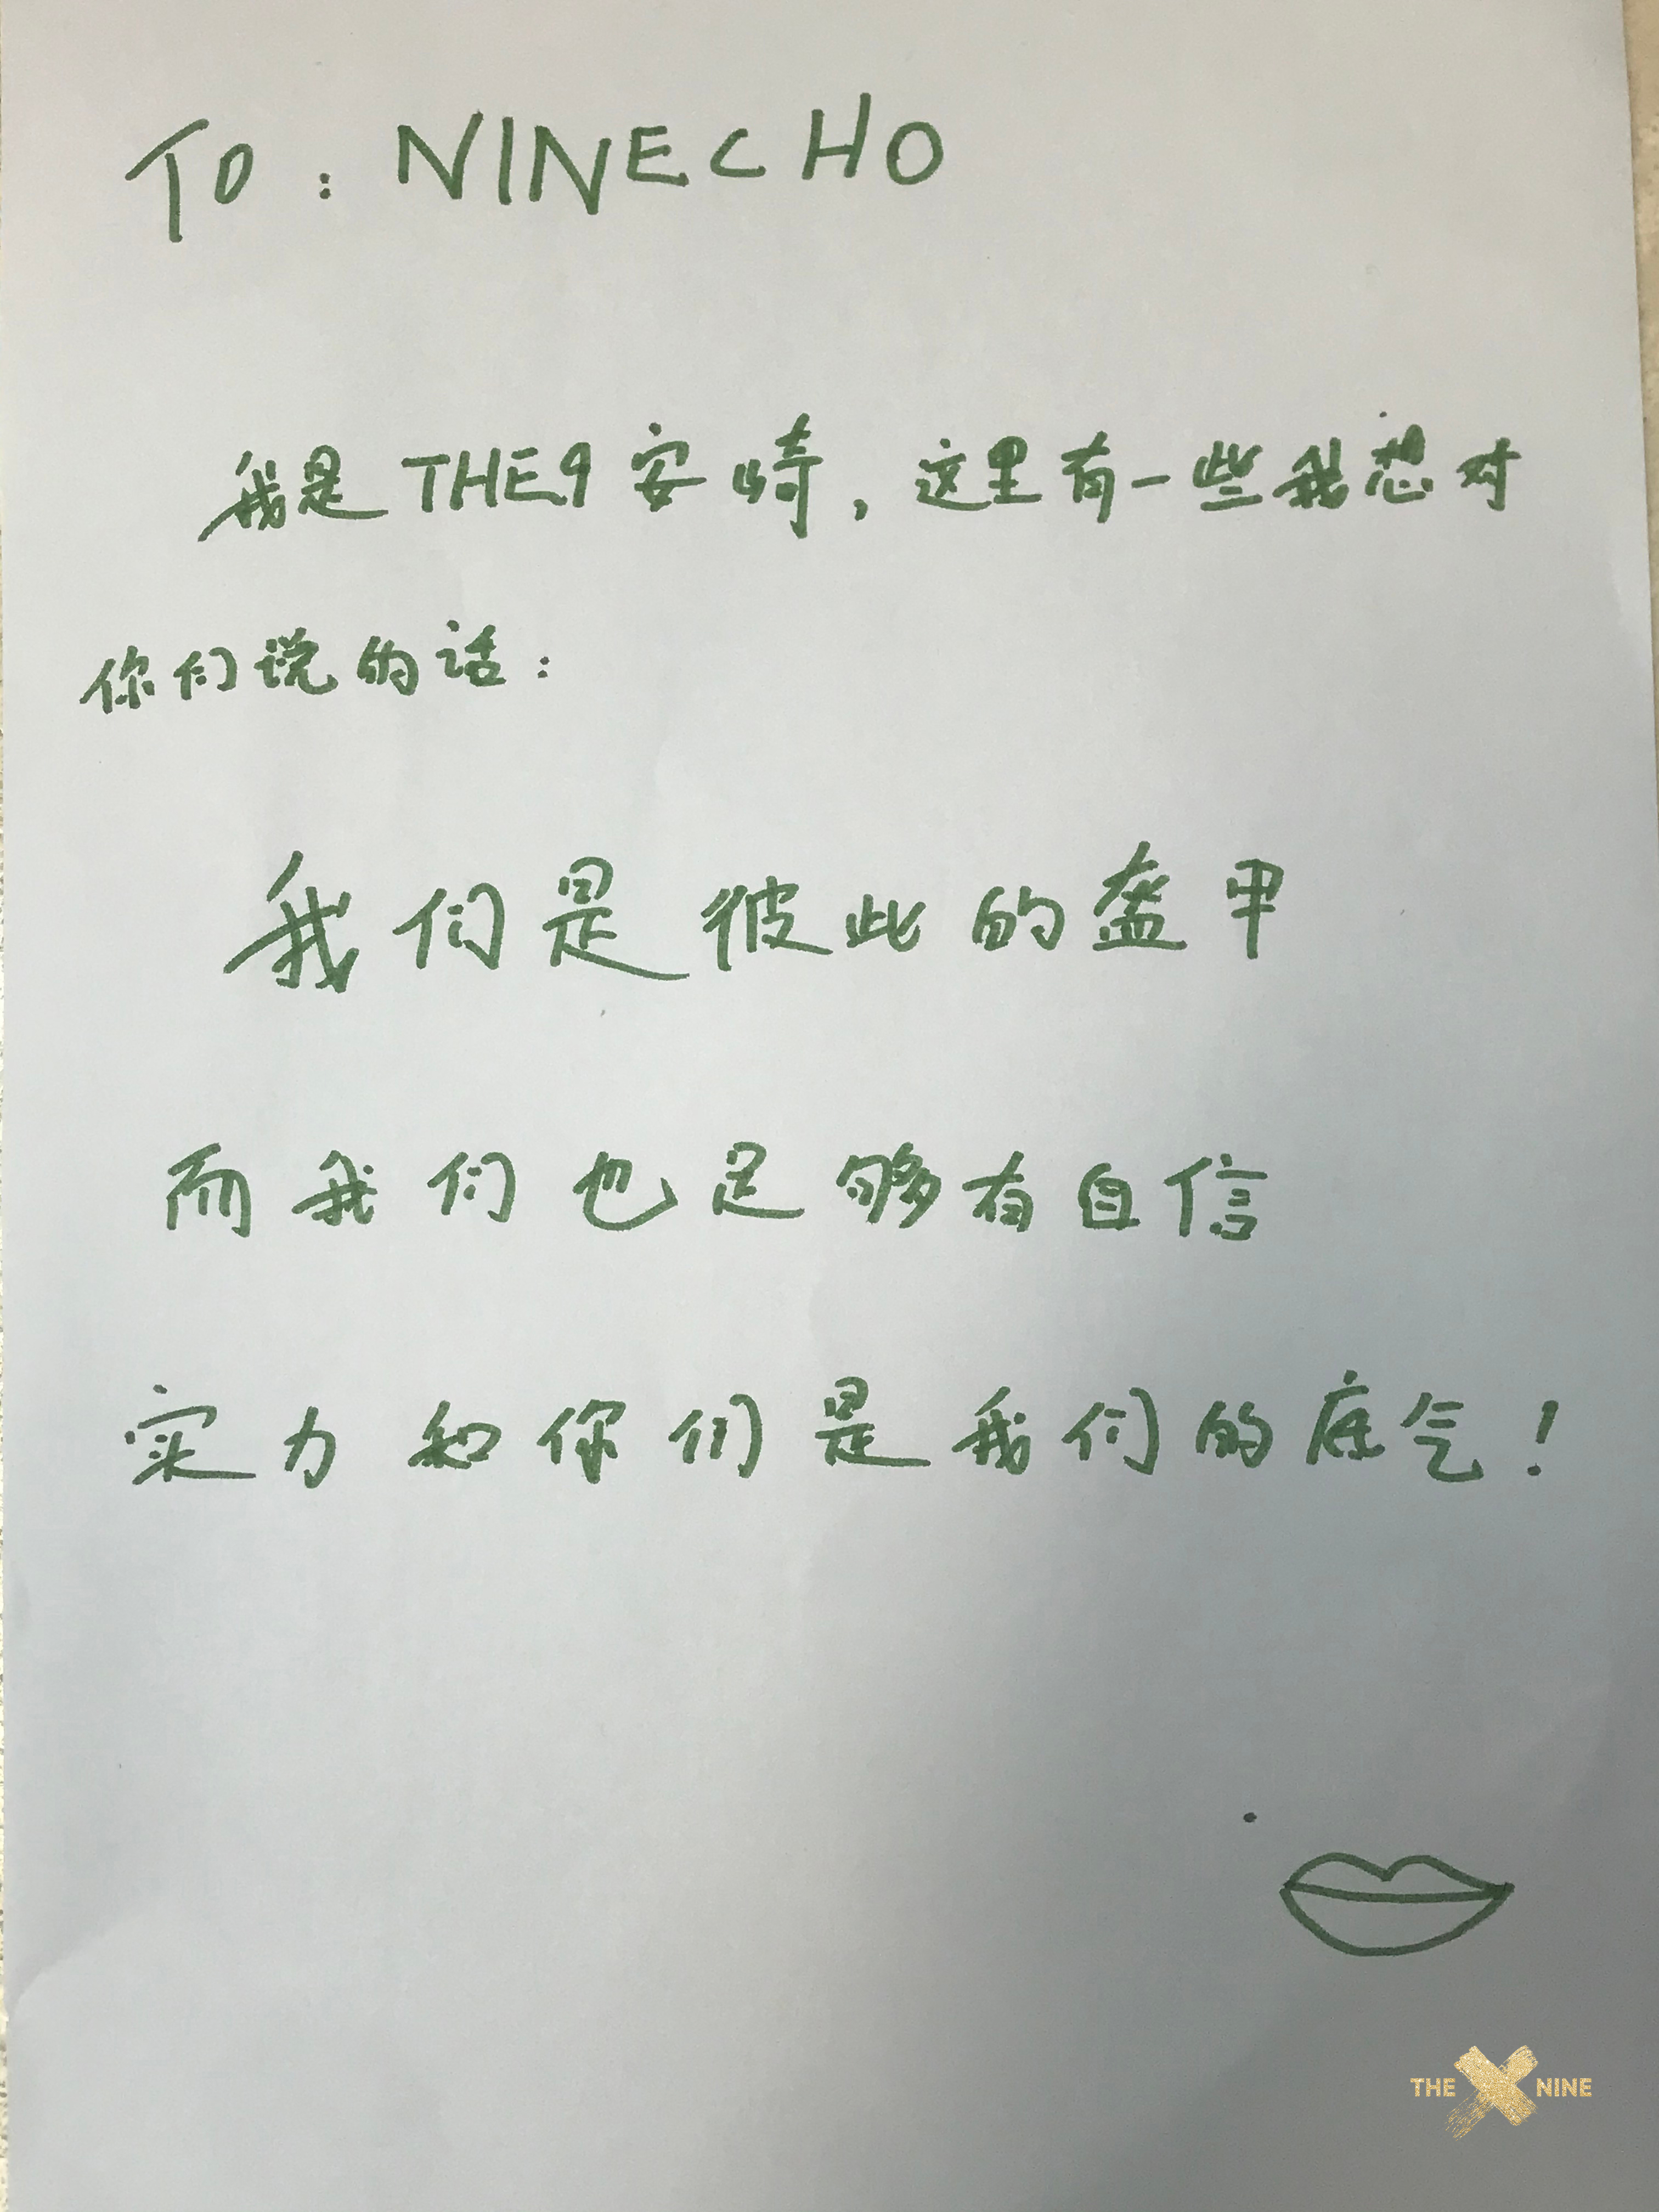 TO：NINECHO
我是THE9安崎，这里有一些我想对
你们说的话：
我们是彼此的盔甲
而我们也足够有自信
实力和你们是我们的底气！
THE NINE